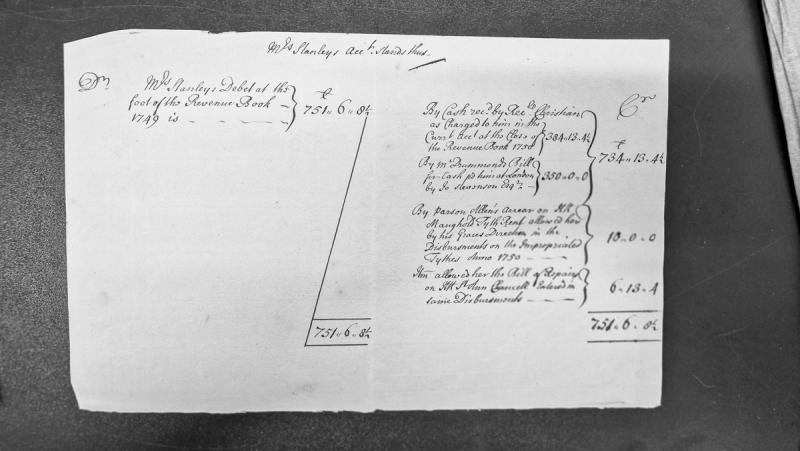 Mrs Stanleys Acct. stands thus.
Dr
Mrs Stanleys Debet at the
foot of the Revenue Book -
1749 is - - - - -
£
751 " 6 " 8½
751 " 6 " 8½
Cr
By Cash recd. by Recr. Christian
as Charged to him in the
Currt. Acct at the Close of
the Revenue Book 1750
384 " 13 " 4½
By Mr Drummonds Bill
for Cash pd him at London
by Jo Stevenson Esqr. -
350 " 0 " 0
£
734 " 13 " 4½
By parson Allen's Arrear on KK
Maughold Tyth Rent allowed her
by his Graces Direction in the
Disbursments on the Impropriated
Tythes Anno 1750 - - -
10 " 0 " 0
Itm allowed her the Bill of Repairs
on KK St Ann Chancell Entered in
same Disbursments - - -
6 " 13 " 4
751 " 6 " 8½